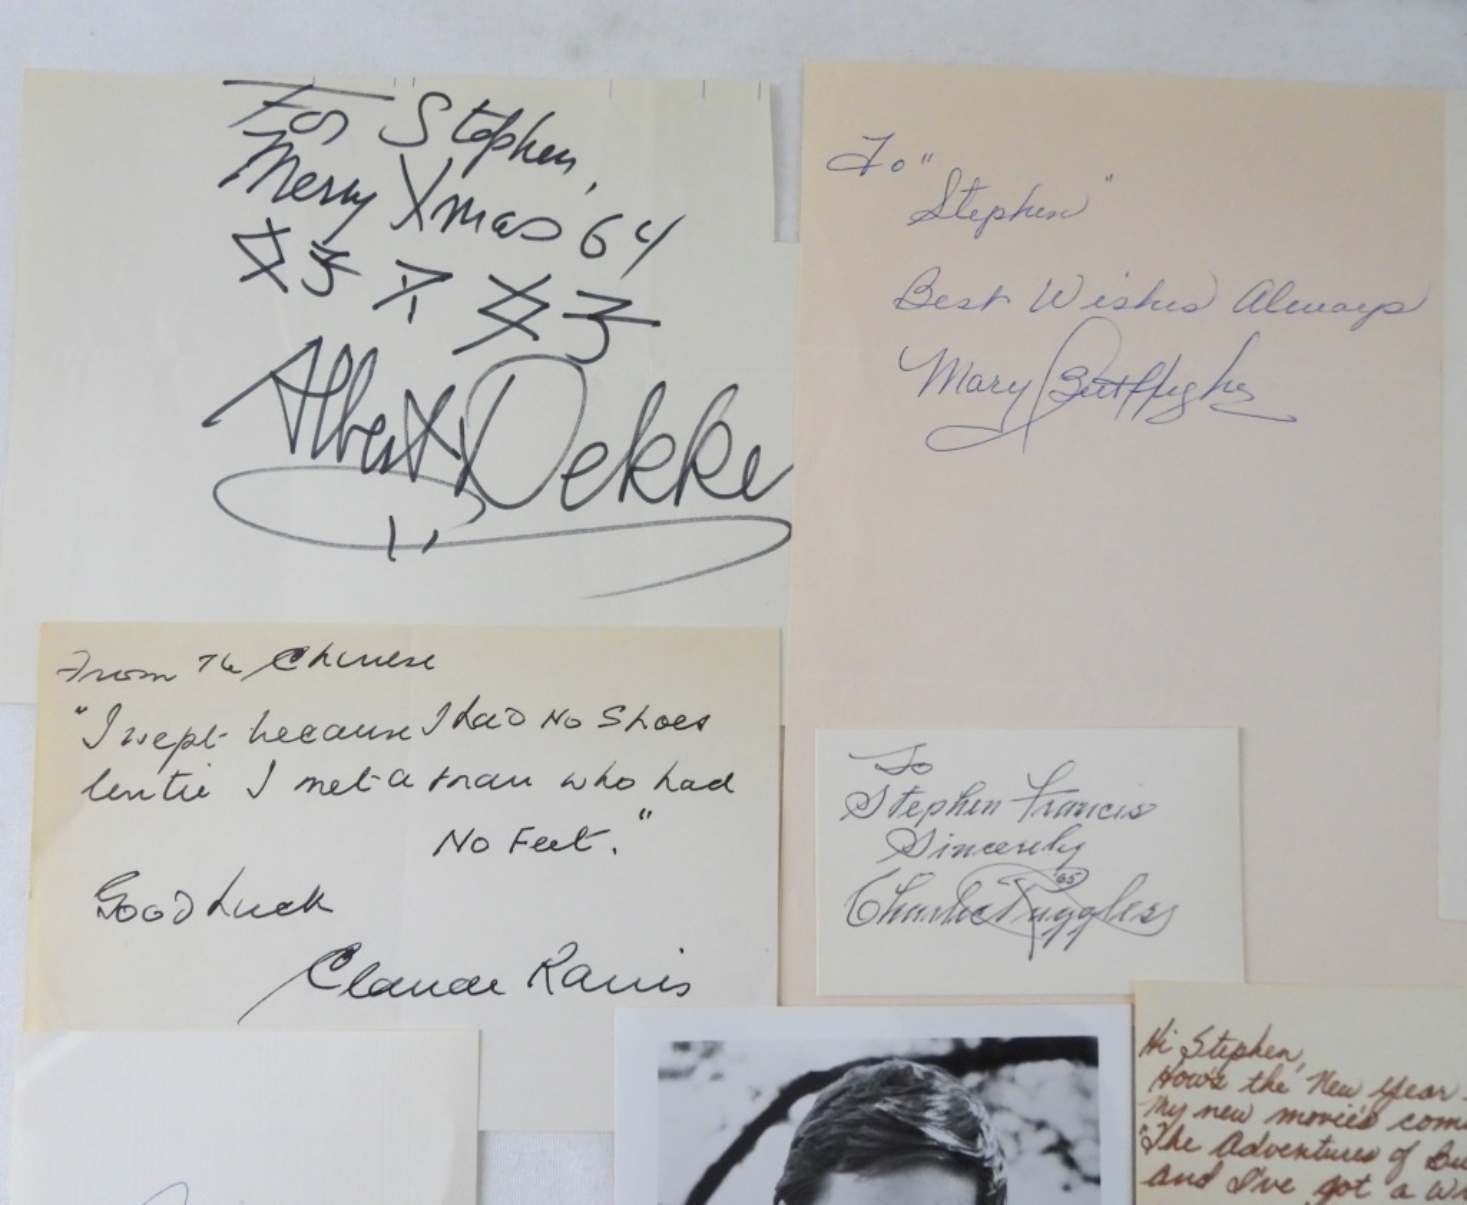 For Stephen,
Merry Xmas 64
好 不 好
Albert Dekke
To "
Stephen"
Best Wishes Always
Mary
From The Chinese
"I wept because I had No Shoes
until I met a man who had
No Feet."
Good Luck
Claude Rains
To
Stephen Francis
Sincerely
'65
Charlie Ruggles
Hi Stephen,
How's the New Year
My new movie's com
"The Adventures of Bu
and I've got a